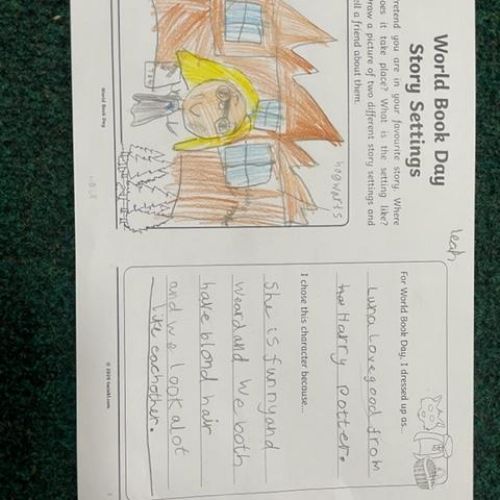 World Book Day
Story Settings
Pretend you are in your favourite story. Where
does it take place? What is the setting like?
Draw a picture of two different story settings and
tell a friend about them.
hogwarts
World Book Day
leah
For World Book Day, I dressed up as...
Luna Lovegood from
Harry Potter.
I chose this character because...
She is funny and
weard and we both
have blond hair
and we look alot
like eachother.